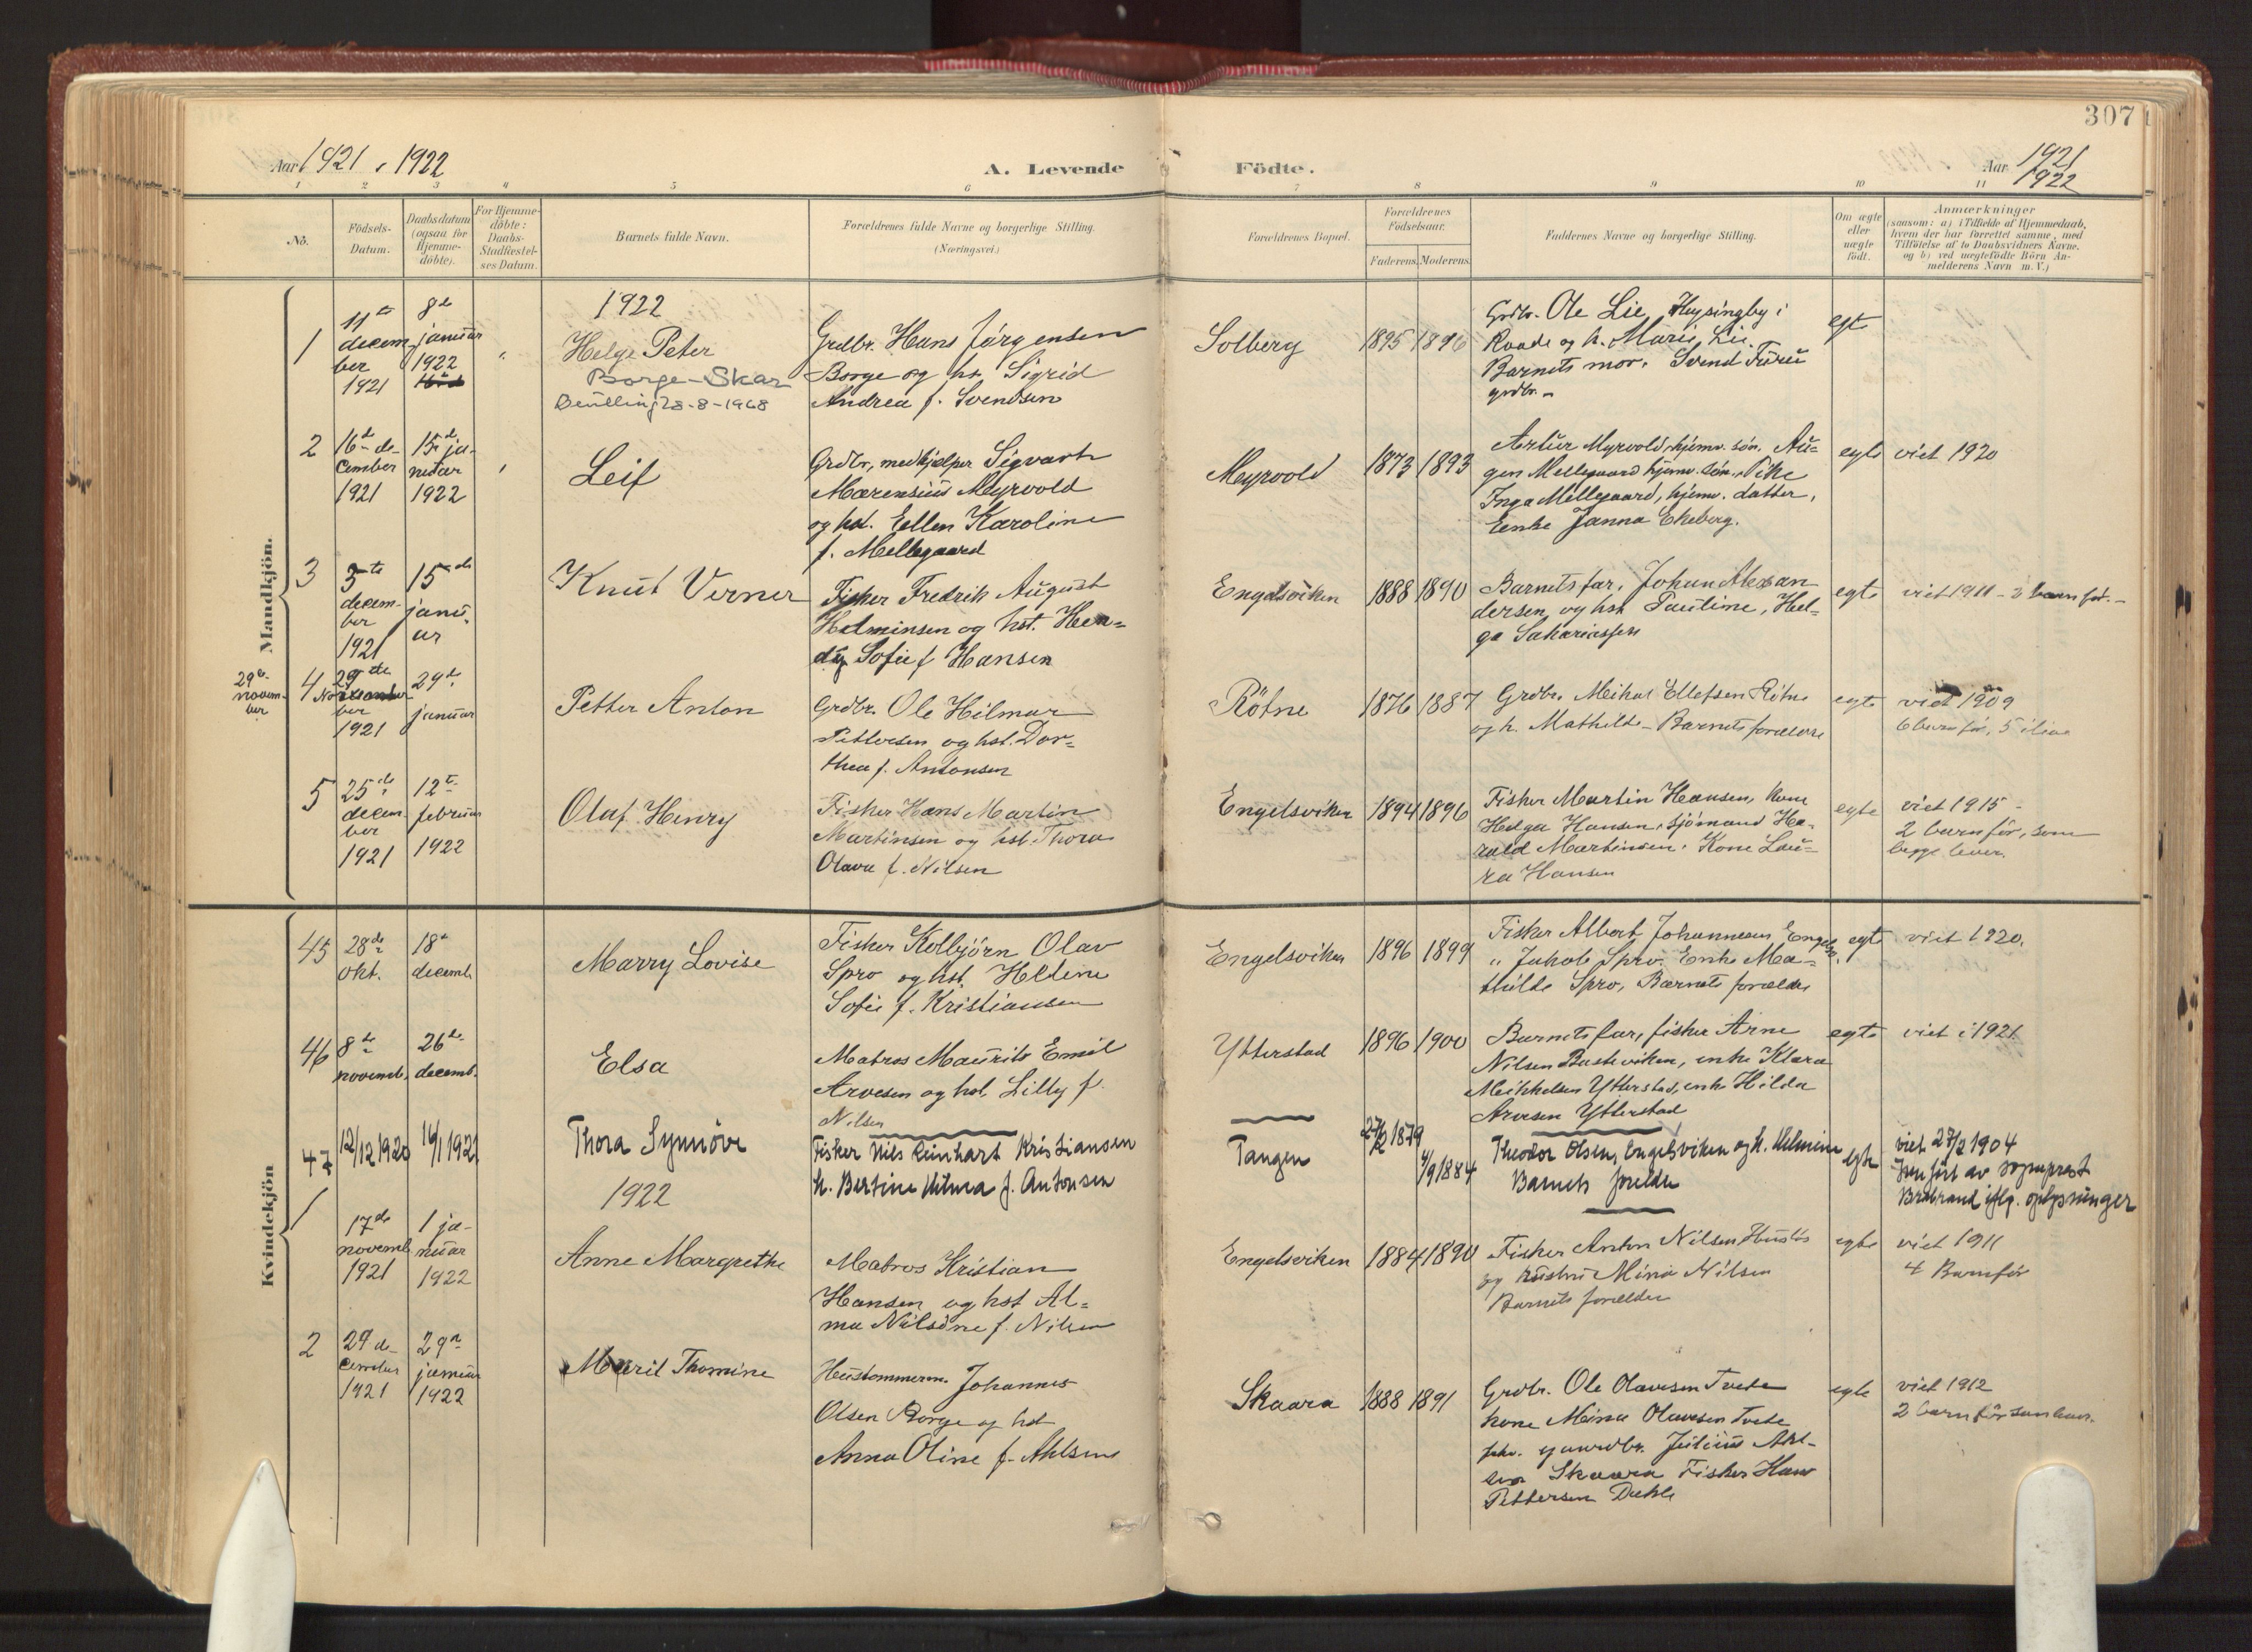 307
Aar 1921, 1922
A. Levende
Födte.
Aar 1921
1922
1 2 3 4 5 6 7 8 9 10 11
No.
Födsels-
Datum.
Daabsdatum
(ogsaa for
Hjemme-
döbte).
For Hjemme-
döbte:
Daabs-
Stadfæstel-
ses Datum.
Barnets fulde Navn.
Forældrenes fulde Navne og borgerlige Stilling.
(Næringsvei.)
Forældrenes Bopæl.
Forældrenes
Födselsaar.
Faderens. Moderens.
Faddernes Navne og borgerlige Stilling.
Om ægte
eller
uægte
födt.
Anmærkninger
(saasom: a) i Tilfælde af Hjemmedaab,
hvem der har forrettet samme, med
Tilföielse af to Daabsvidners Navne.
og b) ved uægtefödte Börn An-
melderens Navn m. V.)
Mandkjön.
1
11te
decem-
ber
1921
8de
januar
1922
1922
Helge Peter
Borge-Skar
Bevilling 28-8-1968
Grdbr. Hans Jörgensen
Borge og hst. Sigrid
Andrea f. Svendsen
Solberg
1895 1896
Grdbr. Ole Lie, Huysingby i
Raade og h. Marie Lie.
Barnets mor. Svend Furu
grdbr.
egte
2
16de de-
cember
1921
15de ja-
nuar
1922
Leif
Grdbr, medhjelper Sigvart
Marensius Myrvold
og hst. Ellen Karoline
f. Mellegaard
Myrvold
1873 1893
Artur Myrvold, hjemv. søn, Au-
gen Mellegaard hjemv. søn. Pike
Inga Mellegaard, hjemv. datter,
Enke Janna Ekeberg.
egte
viet 1920
3
3te
decem-
ber
1921
15de
janu-
ar
Knut Verner
Fisker Fredrik August
Helminsen og hst. Hen-
dig Sofie f Hansen
Engelsviken
1888 1890
Barnets far, Johan Alexan
dersen og hst Pauline, Hel-
ga Sakariassen
egte
viet 1911 - 3 barn før.
29de
novem-
ber
4
29de
Novem
ber
1921
29de
januar
Petter Anton
Grdbr. Ole Hilmar
Pettersen og hst. Dor-
thea f. Antonsen
Rötne
1876 1887
Grdbr. Mikal Ellefsen Rötne
og h. Mathilde - Barnets forældre
egte
viet 1909
6 barn før, 5 ilive
5
25de
decem
ber
1921
12te
februar
1922
Olaf Henry
Fisker Hans Martin
Martinsen og hst. Thora
Olava f. Nilsen
Engelsviken
1894 1896
Fisker Martin Hansen, kone
Helga Hansen, sjömand Ha-
rald Martinsen, Kone Lau-
ra Hansen
egte
viet 1915 -
2 barn før, som
begge lever.
Kvindekjön
45
28de
okt.
18de
decemb.
Marry Lovise
Fisker Kolbjörn Olav
Spro og hst. Helene
Sofie f. Kristiansen
Engelsviken
1896 1899
Fisker Albert Johannesen Engelsv.
" Jakob Spro. Enke Ma-
thilde Spro, Barnets forældre
egte
viet 1920.
46
8de
novemb.
26de
decemb.
Elsa
Matros Maurits Emil
Arvesen og hst. Lilly f.
Nilsen
Ytterstad
1896 1900
Barnets far, fisker Arne
Nilsen Buskviken, enke Klara
Mikkelsen Ytterstad, enke Hilda
Arvesen Ytterstad
egte
viet i 1921
47
12/12 1920
16/1 1921
Thora Synnöve
Fisker Nils Leinhart Kristiansen
h. Bertine Vilma f. Antonsen
Tangen
27/2 1879
4/9 1884
Theodor Olsen, Engelsviken og h. Helmine
Barnets foreldre
egte
viet 27/2 1904
Innført av sogneprest
Brobrand iflg. oplysninger
1922
1
17de
novemb.
1921
1 ja-
nuar
1922
Anne Margrethe
Matros Kristian
Hansen og hst Al-
ma Nilsine f. Nilsen
Engelsviken
1884 1890
Fisker Anton Nilsen
og hustru Mina Nilsen
Barnets forælder
egte
viet 1911
4 Barn før
2
29 de-
cember
1921
29de
januar
1922
Marit Thomine
Hustømmerm. Johannes
Olsen Borge og hst
Anna Oline f. Ahlsen
Skaara
1888 1891
Grdbr. Ole Olavesen Tvete
kone Mina Olavesen Tvete
gaardbr. Julius Ahl-
sen Skaara Fisker Hans
Pettersen Dahle
egte
viet 1912
2 barn før som lever.